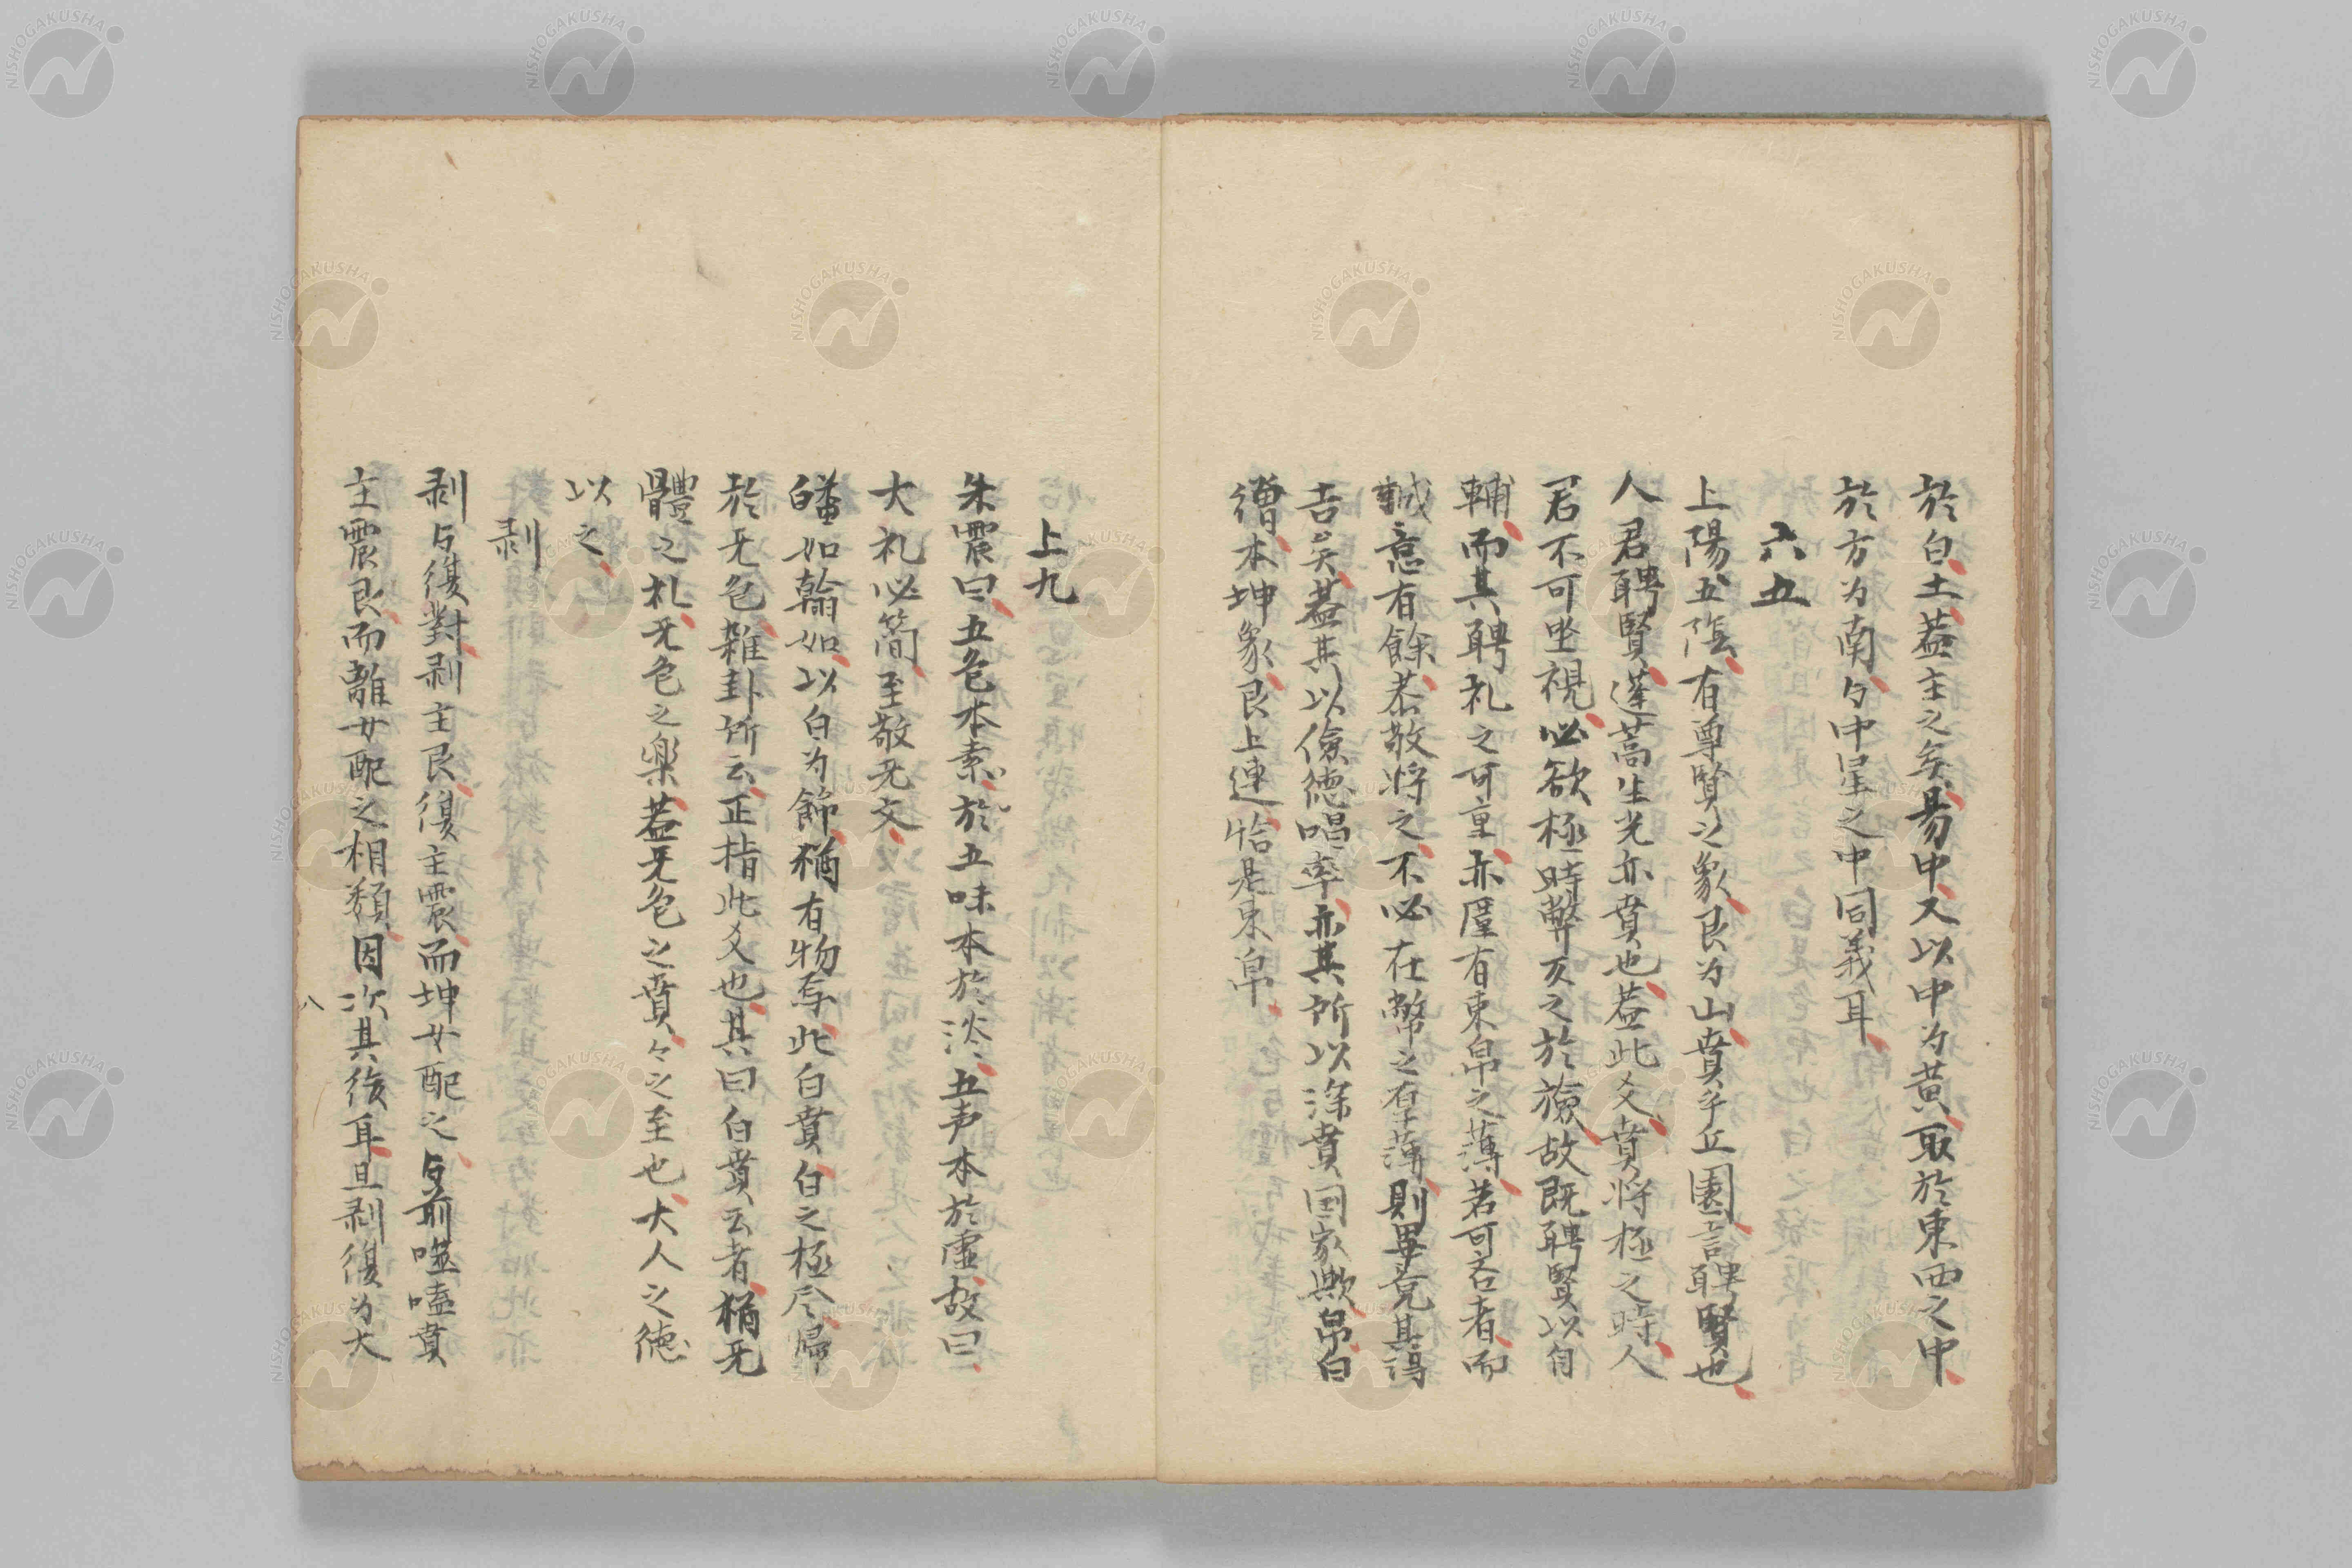 於白土蓋主之矣易中又以中为黄取於東西之中
於方为南与中星之中同義耳
六五
上陽五陰有尊賢之象艮为山賁乎丘園言聘賢也
人君聘賢蓬蒿生光亦賁也蓋此爻賁将极之時人
君不可坐視必欲极時弊反之於儉故既聘賢以自
輔而其聘礼之可重亦厪有束帛之薄若可吝者而
誠意有餘恭敬将之不必在幣之厚薄則畢竟其得
吉矣蓋其以儉德唱率亦其所以深賁国家欤帛白
繒本坤象艮上連恰是束帛
上九
朱震曰五色本素於五味本於淡五声本於虚故曰
大礼必簡至敬无文
皤如翰如以白为飾猶有物存此白賁白之極尽歸
於无色雜卦所云正指此爻也其曰白賁云者猶无
體之礼无色之樂蓋无色之賁々之至也大人之德
以之
剥
剥与復對剥主艮復主震而坤女配之与前噬嗑賁
主震艮而離女配之相類因次其後耳且剥復为大
八
NISHOGAKUSHA